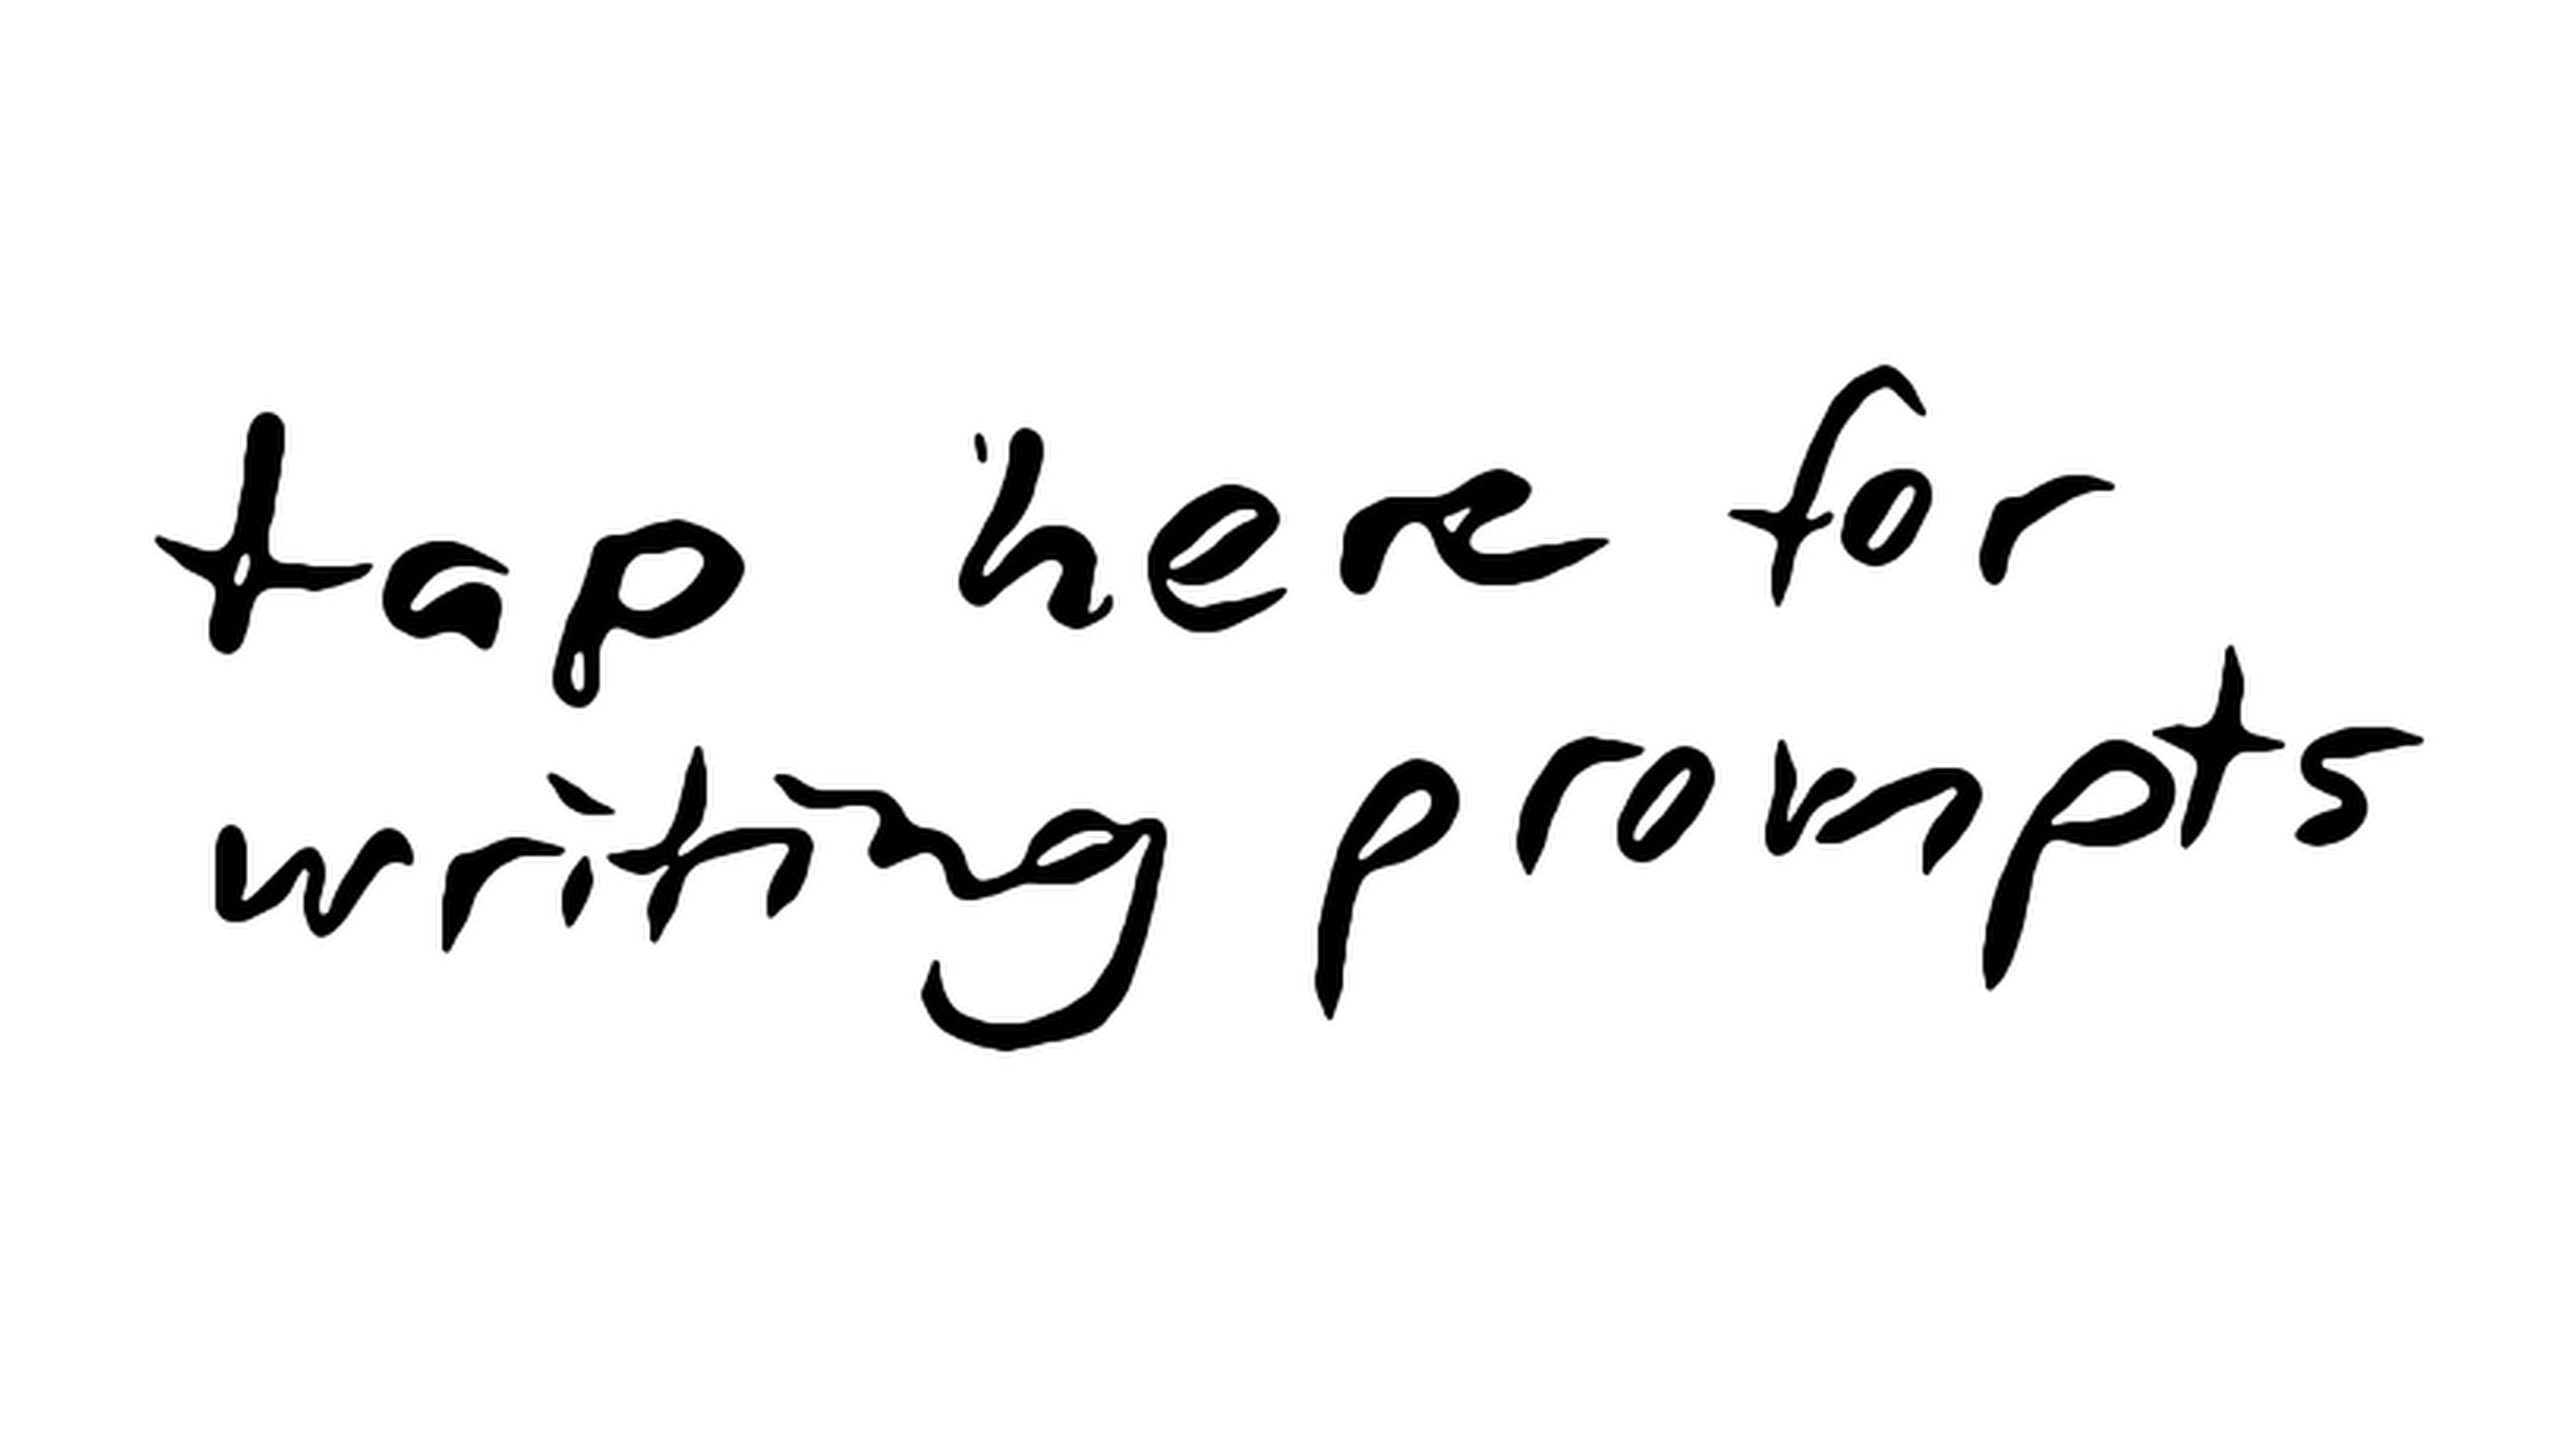 tap here for
writing prompts